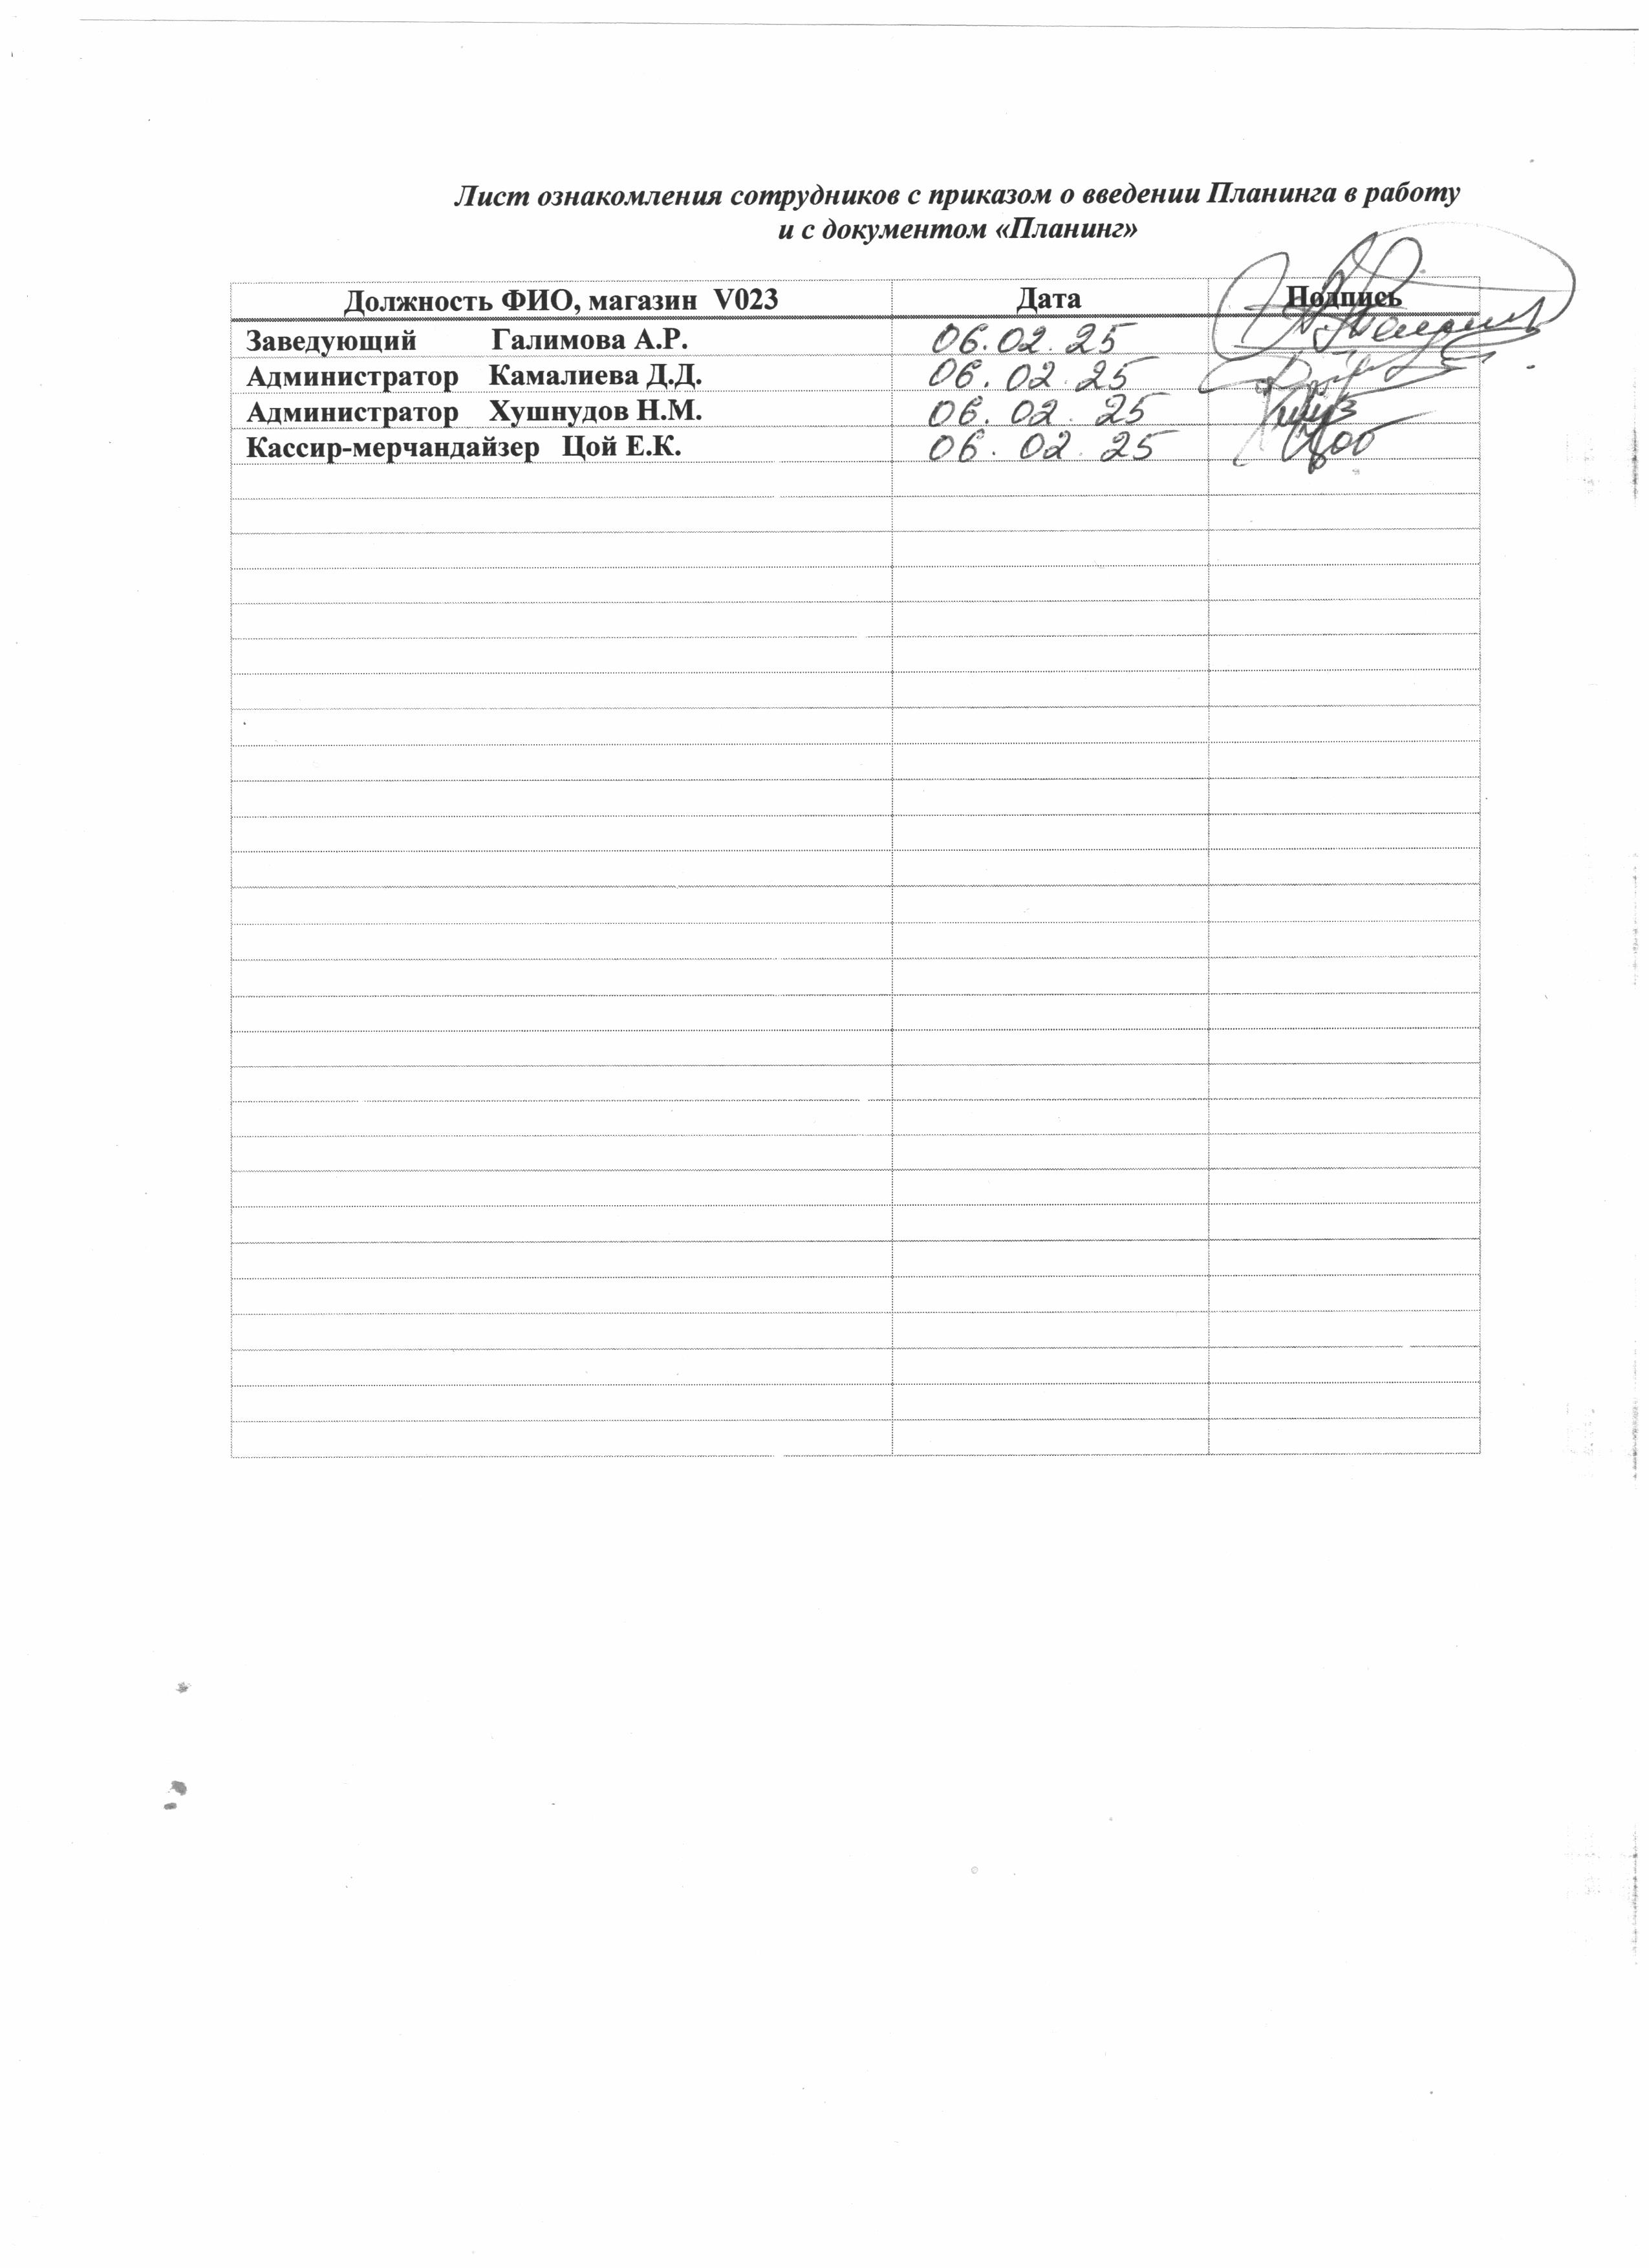 Лист ознакомления сотрудников с приказом о введении Планинга в работу
и с документом «Планинг»
Должность ФИО, магазин V023 Дата Подпись
Заведующий Галимова А.Р. 06.02.25
Администратор Камалиева Д.Д. 06.02.25
Администратор Хушнудов Н.М. 06.02.25
Кассир-мерчандайзер Цой Е.К. 06.02.25